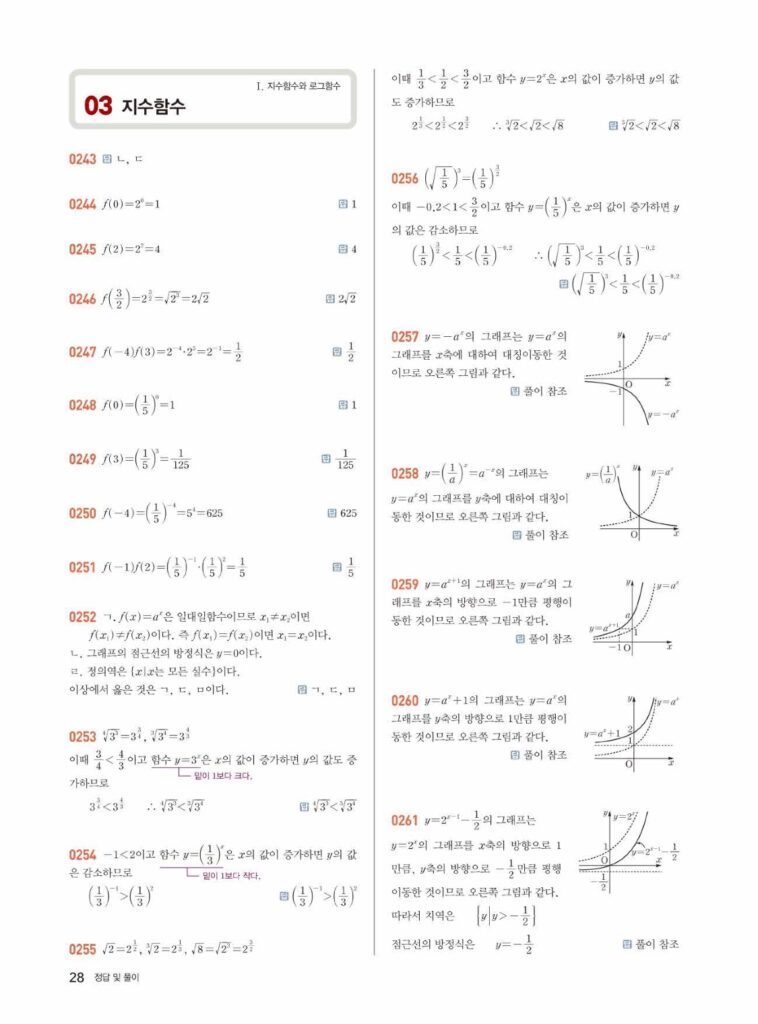 Ⅰ. 지수함수와 로그함수
03 지수함수
0243 답 ㄴ, ㄷ
0244 f(0)=2⁰=1 답 1
0245 f(2)=2²=4 답 4
0246 f(3/2)=2^(3/2)=√2³=2√2 답 2√2
0247 f(-4)f(3)=2⁻⁴·2³=2⁻¹=1/2 답 1/2
0248 f(0)=(1/5)⁰=1 답 1
0249 f(3)=(1/5)³=1/125 답 1/125
0250 f(-4)=(1/5)⁻⁴=5⁴=625 답 625
0251 f(-1)f(2)=(1/5)⁻¹·(1/5)²=1/5 답 1/5
0252 ㄱ. f(x)=aˣ은 일대일함수이므로 x₁≠x₂이면
f(x₁)≠f(x₂)이다. 즉 f(x₁)=f(x₂)이면 x₁=x₂이다.
ㄴ. 그래프의 점근선의 방정식은 y=0이다.
ㄹ. 정의역은 {x|x는 모든 실수}이다.
이상에서 옳은 것은 ㄱ, ㄷ, ㅁ이다. 답 ㄱ, ㄷ, ㅁ
0253 ⁴√3³=3^(3/4), ³√3⁴=3^(4/3)
이때 3/4<4/3이고 함수 y=3ˣ은 x의 값이 증가하면 y의 값도 증
밑이 1보다 크다.
가하므로
3^(3/4)<3^(4/3) ∴ ⁴√3³<³√3⁴ 답 ⁴√3³<³√3⁴
0254 -1<2이고 함수 y=(1/3)ˣ은 x의 값이 증가하면 y의 값
밑이 1보다 작다.
은 감소하므로
(1/3)⁻¹>(1/3)² 답 (1/3)⁻¹>(1/3)²
0255 √2=2^(1/2), ³√2=2^(1/3), √8=√2³=2^(3/2)
이때 1/3<1/2<3/2이고 함수 y=2ˣ은 x의 값이 증가하면 y의 값
도 증가하므로
2^(1/3)<2^(1/2)<2^(3/2) ∴ ³√2<√2<√8 답 ³√2<√2<√8
0256 (√(1/5))³=(1/5)^(3/2)
이때 -0.2<1<3/2이고 함수 y=(1/5)ˣ은 x의 값이 증가하면 y
의 값은 감소하므로
(1/5)^(3/2)<1/5<(1/5)^(-0.2) ∴ (√(1/5))³<1/5<(1/5)^(-0.2)
답 (√(1/5))³<1/5<(1/5)^(-0.2)
0257 y=-aˣ의 그래프는 y=aˣ의
그래프를 x축에 대하여 대칭이동한 것
이므로 오른쪽 그림과 같다.
답 풀이 참조
y y=aˣ
1
O x
-1
y=-aˣ
0258 y=(1/a)ˣ=a⁻ˣ의 그래프는
y=aˣ의 그래프를 y축에 대하여 대칭이
동한 것이므로 오른쪽 그림과 같다.
답 풀이 참조
y=(1/a)ˣ y y=aˣ
1
O x
0259 y=aˣ⁺¹의 그래프는 y=aˣ의 그
래프를 x축의 방향으로 -1만큼 평행이
동한 것이므로 오른쪽 그림과 같다.
답 풀이 참조
y y=aˣ
a
y=aˣ⁺¹
1
-1 O x
0260 y=aˣ+1의 그래프는 y=aˣ의
그래프를 y축의 방향으로 1만큼 평행이
동한 것이므로 오른쪽 그림과 같다.
답 풀이 참조
y y=aˣ
y=aˣ+1 2
1
O x
0261 y=2ˣ⁻¹-1/2의 그래프는
y=2ˣ의 그래프를 x축의 방향으로 1
만큼, y축의 방향으로 -1/2만큼 평행
이동한 것이므로 오른쪽 그림과 같다.
따라서 치역은 {y|y>-1/2}
점근선의 방정식은 y=-1/2 답 풀이 참조
y y=2ˣ
1
O x
y=2ˣ⁻¹-1/2
-1/2
28 정답 및 풀이